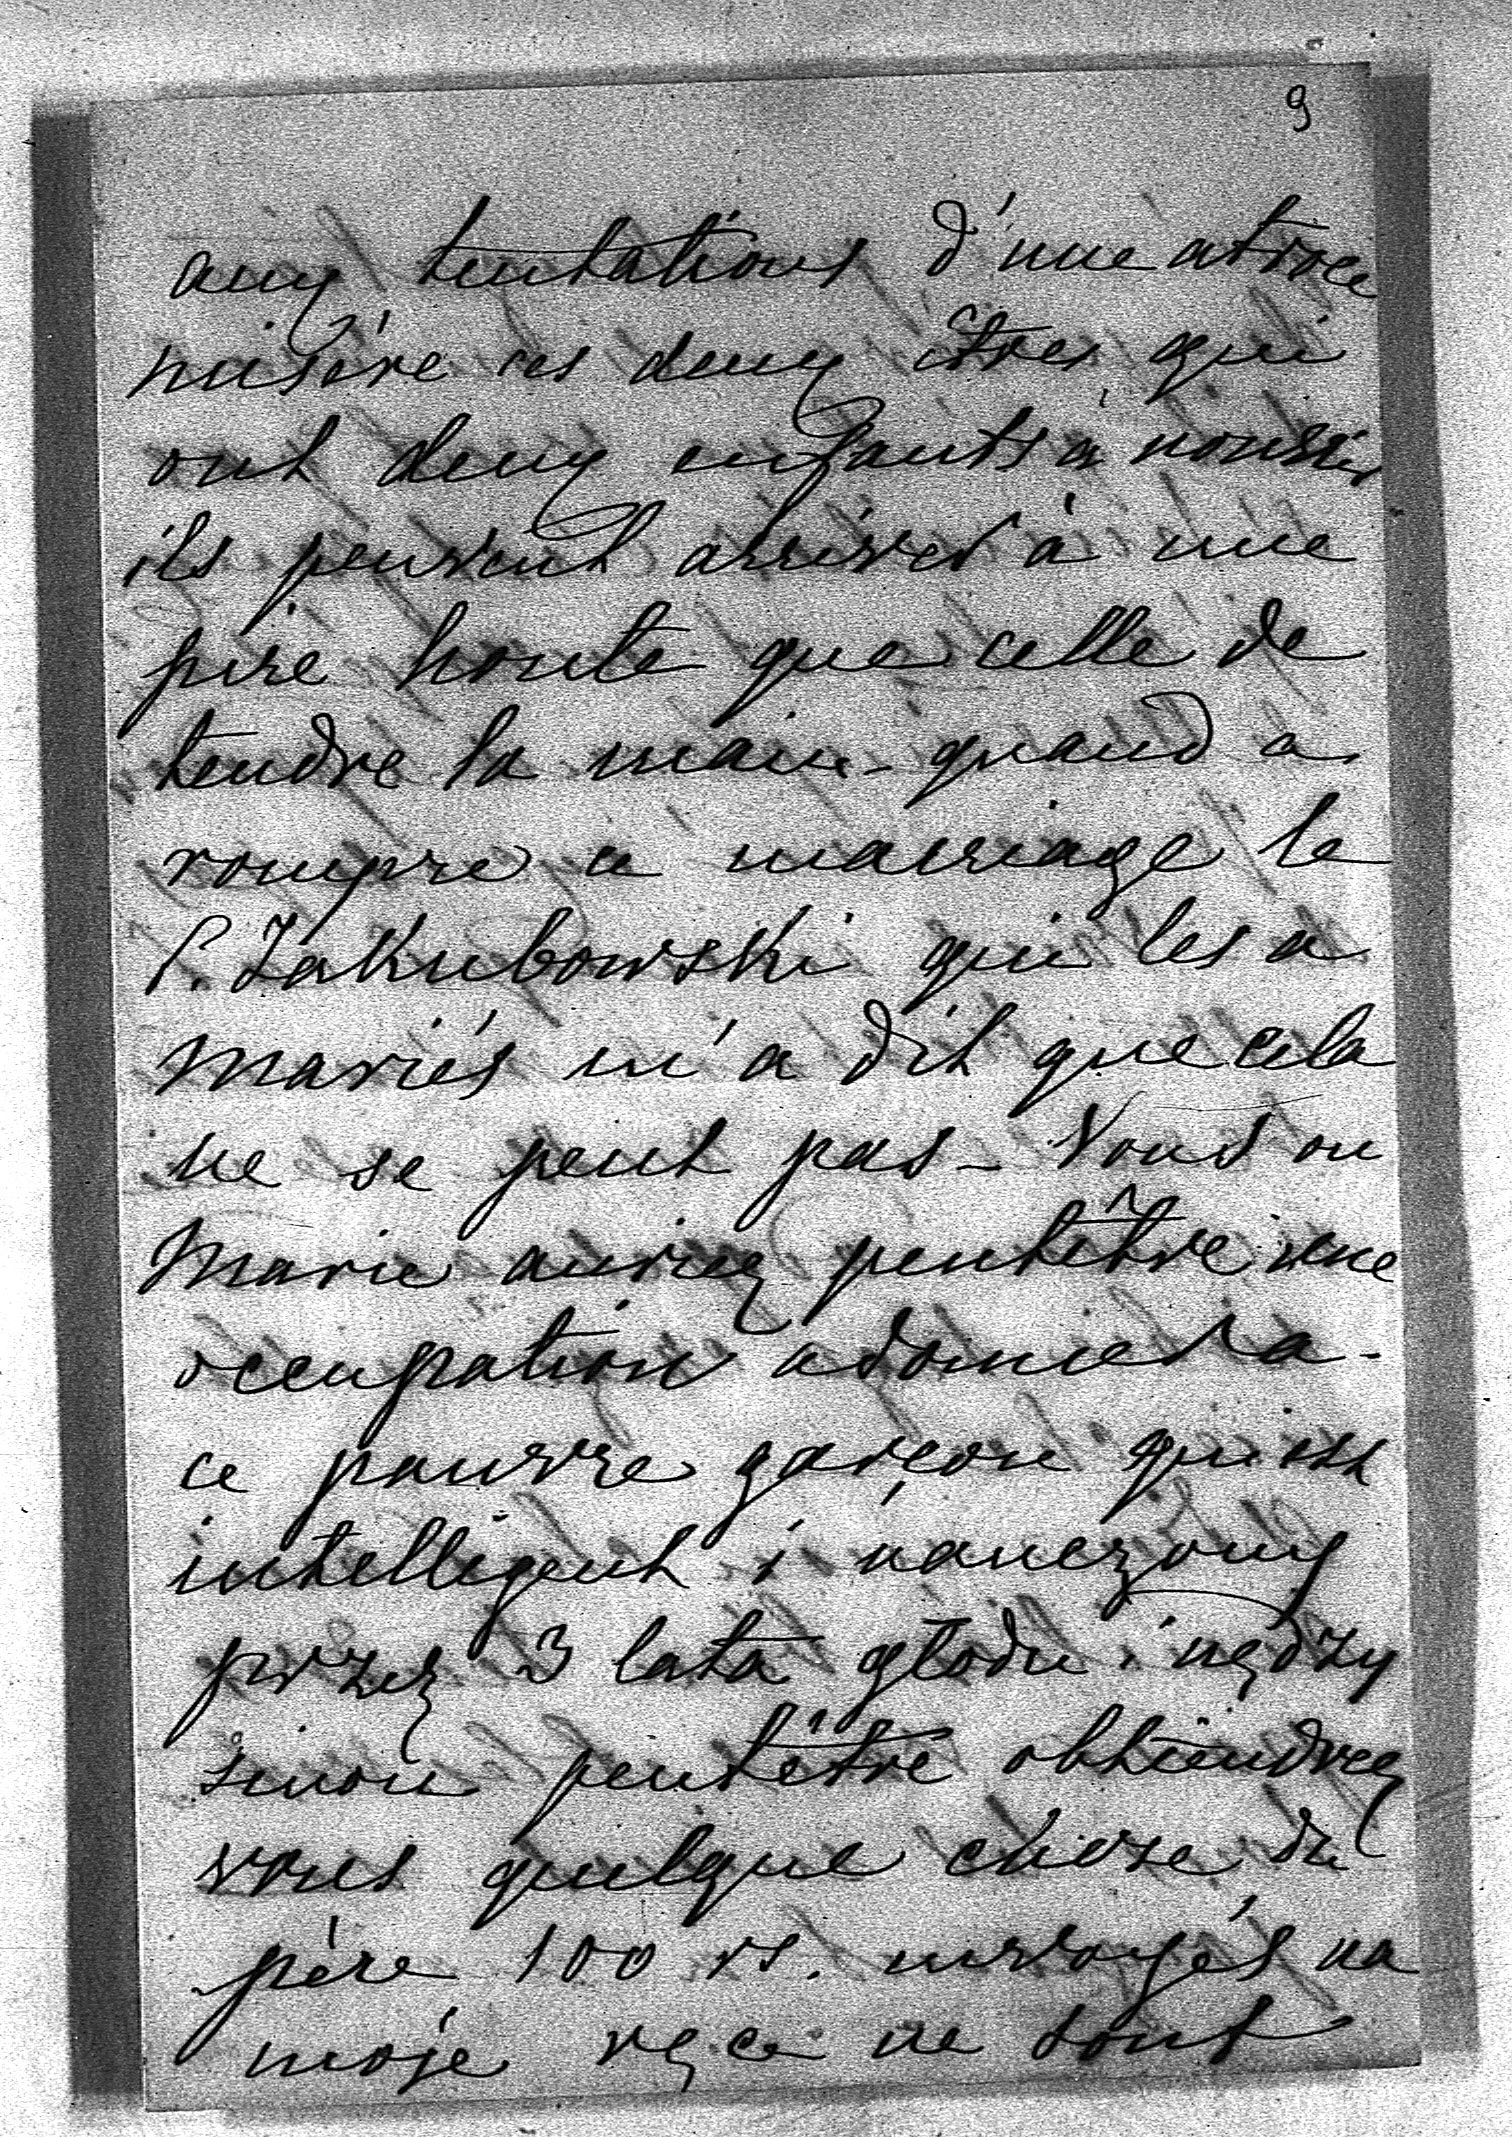 9
aux tentations d'une atroce
misère ces deux êtres qui
ont deux enfants à nourrir
ils peuvent arriver à une
pire honte que celle de
tendre la main - quand a
rompre ce mariage le
P. Jakubowski qui les a
mariés m'a dit que cela
ne se peut pas - Vous ou
Marie auriez peutêtre une
occupation a donner a
ce pauvre garçon qui est
intelligent i nauczony
przez 3 lata głodu i nędzy
sinon peutêtre obtiendrez
vous quelque chose du
père 100 rs. envoyés na
moje ręce ne sont